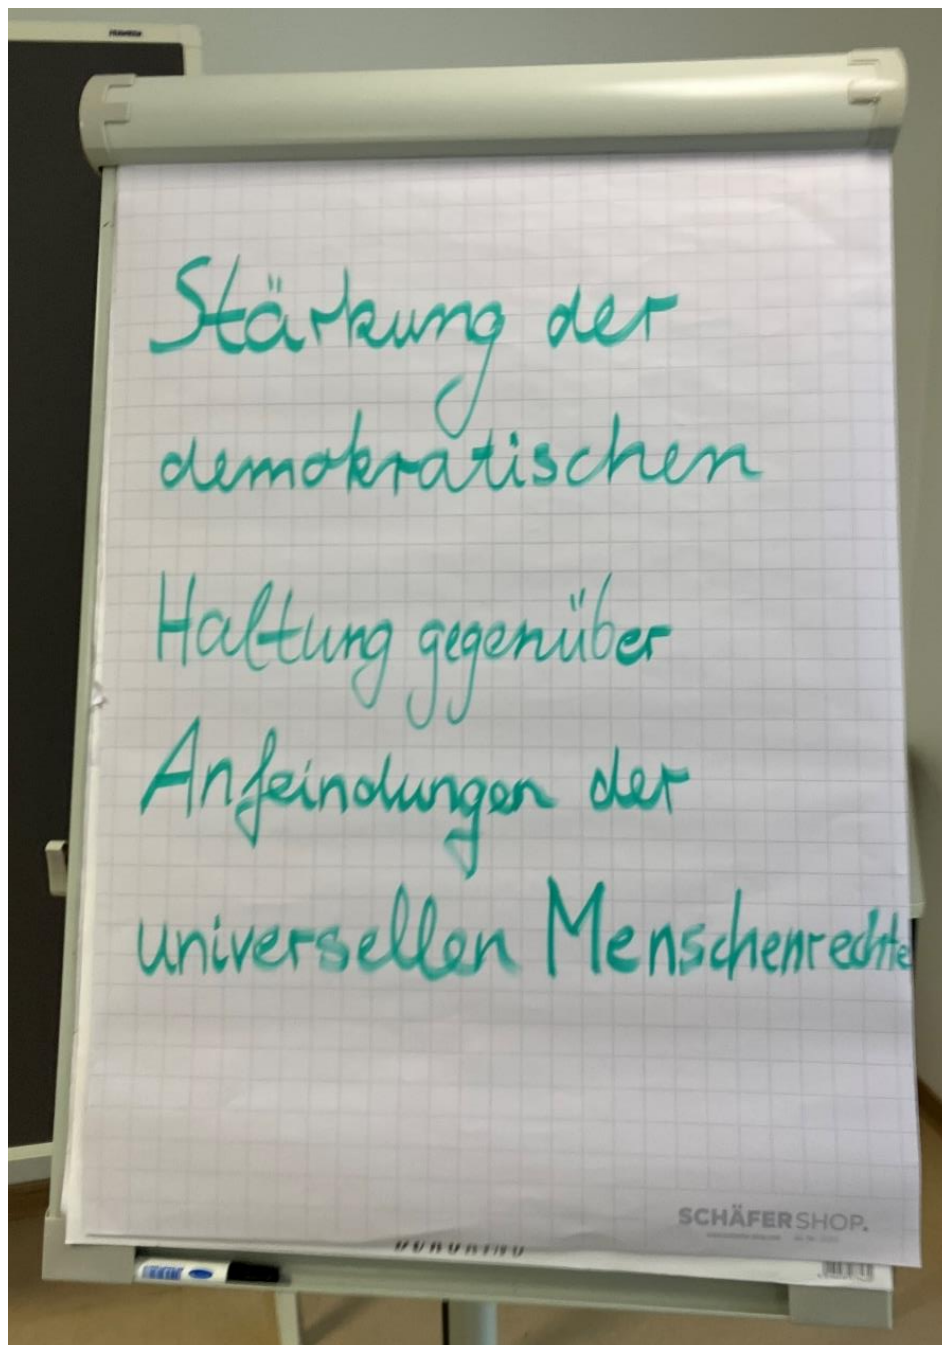 Stärkung der
demokratischen
Haltung gegenüber
Anfeindungen der
universellen Menschenrechte
SCHÄFER SHOP.